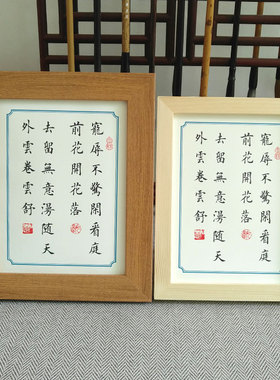 寵辱不驚閑看庭
前花開花落
去留無意漫隨天
外雲卷雲舒
寵辱不驚閑看庭
前花開花落
去留無意漫隨天
外雲卷雲舒